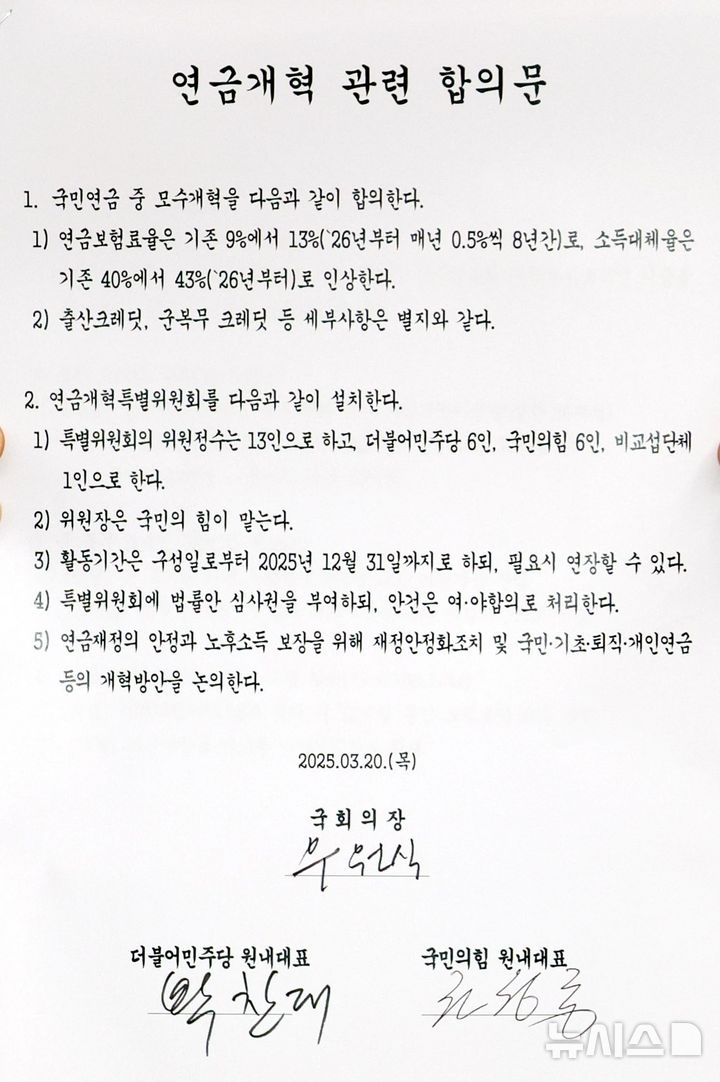 연금개혁 관련 합의문
1. 국민연금 중 모수개혁을 다음과 같이 합의한다.
1) 연금보험료율은 기존 9%에서 13%(`26년부터 매년 0.5%씩 8년간)로, 소득대체율은
기존 40%에서 43%(`26년부터)로 인상한다.
2) 출산크레딧, 군복무 크레딧 등 세부사항은 별지와 같다.
2. 연금개혁특별위원회를 다음과 같이 설치한다.
1) 특별위원회의 위원정수는 13인으로 하고, 더불어민주당 6인, 국민의힘 6인, 비교섭단체
1인으로 한다.
2) 위원장은 국민의 힘이 맡는다.
3) 활동기간은 구성일로부터 2025년 12월 31일까지로 하되, 필요시 연장할 수 있다.
4) 특별위원회에 법률안 심사권을 부여하되, 안건은 여·야합의로 처리한다.
5) 연금재정의 안정과 노후소득 보장을 위해 재정안정화조치 및 국민·기초·퇴직·개인연금
등의 개혁방안을 논의한다.
2025.03.20.(목)
국회의장
우원식
더불어민주당 원내대표 국민의힘 원내대표
박찬대 권성동
뉴시스